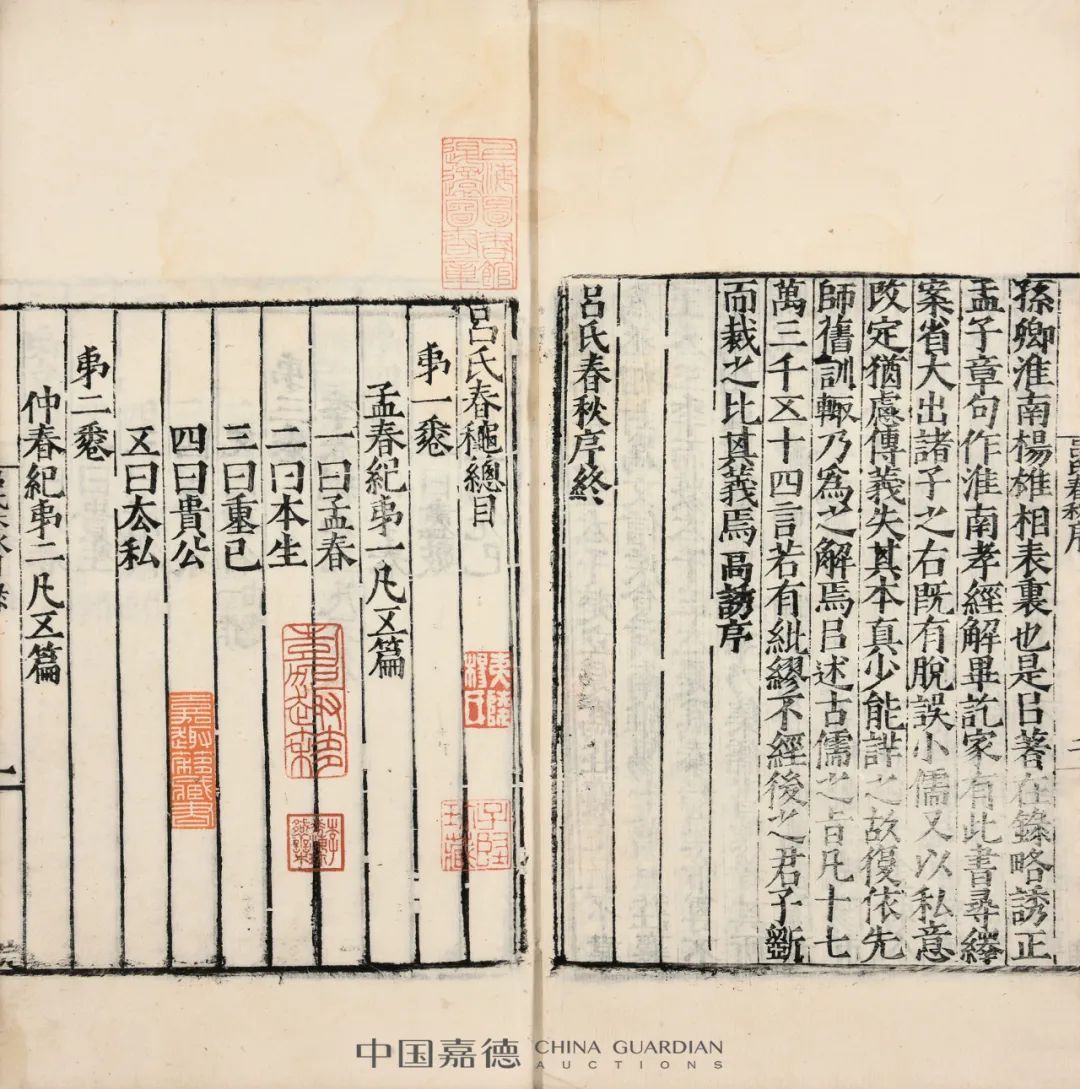 孫卿淮南楊雄相表裏也是㠯著在錄略誘正
孟子章句作淮南孝經解畢訖家有此書尋繹
案省大出諸子之右既有脫誤小儒又以私意
攺定猶慮傳義失其本真少能詳之故復依先
師舊訓輙乃為之解焉㠯述古儒之旨凡十七
萬三千五十四言若有紕繆不經後之君子斷
而裁之比其義焉高誘序
呂氏春秋序終
呂氏春秌總目
弟一卷
孟春紀弟一凡五篇
一曰孟春
二曰本生
三曰重己
四曰貴公
五曰去私
弟二卷
仲春紀弟二凡五篇
上海圖書館
退還圖書章
夷陵
穆氏
嘉趣藏書
中国嘉德 CHINA GUARDIAN
AUCTIONS